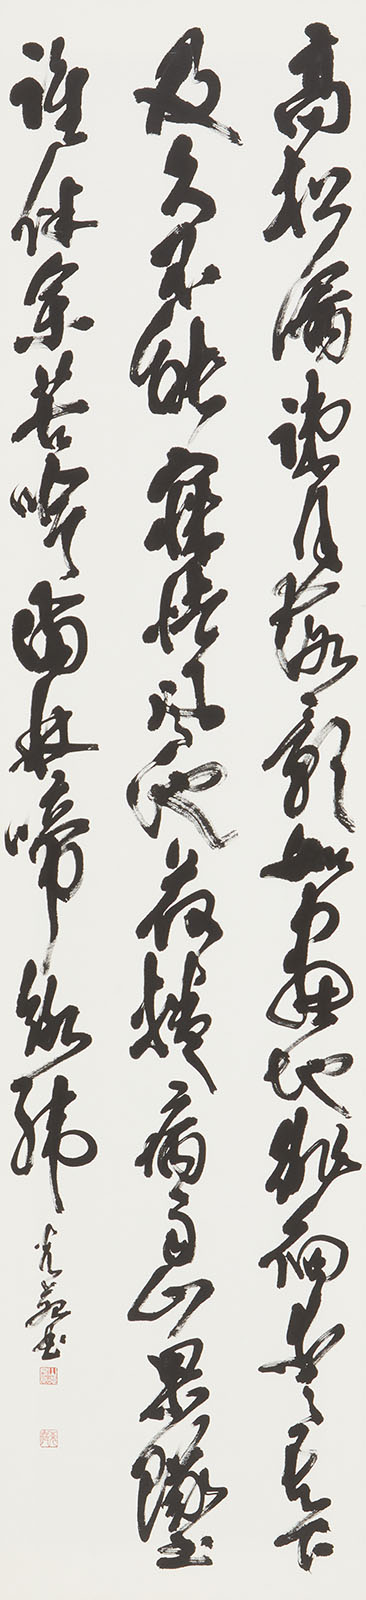 高松漏疎月落影如畫地徘徊愛其下
及久不能寐怯風池荷捲病雨山果墜
誰伴余苦吟滿林啼絡緯
書